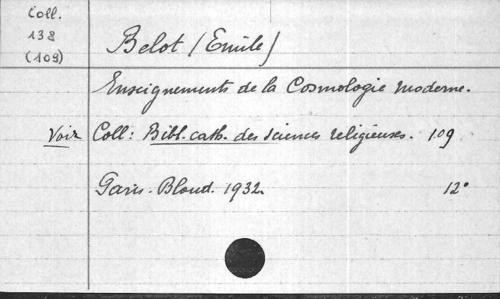 Coll.
138
(109)
Belot (Emile)
Enseignements de la Cosmologie moderne.
Voir Coll: Bibl. cath. des sciences religieuses. 109
Paris. Bloud. 1932. 12°